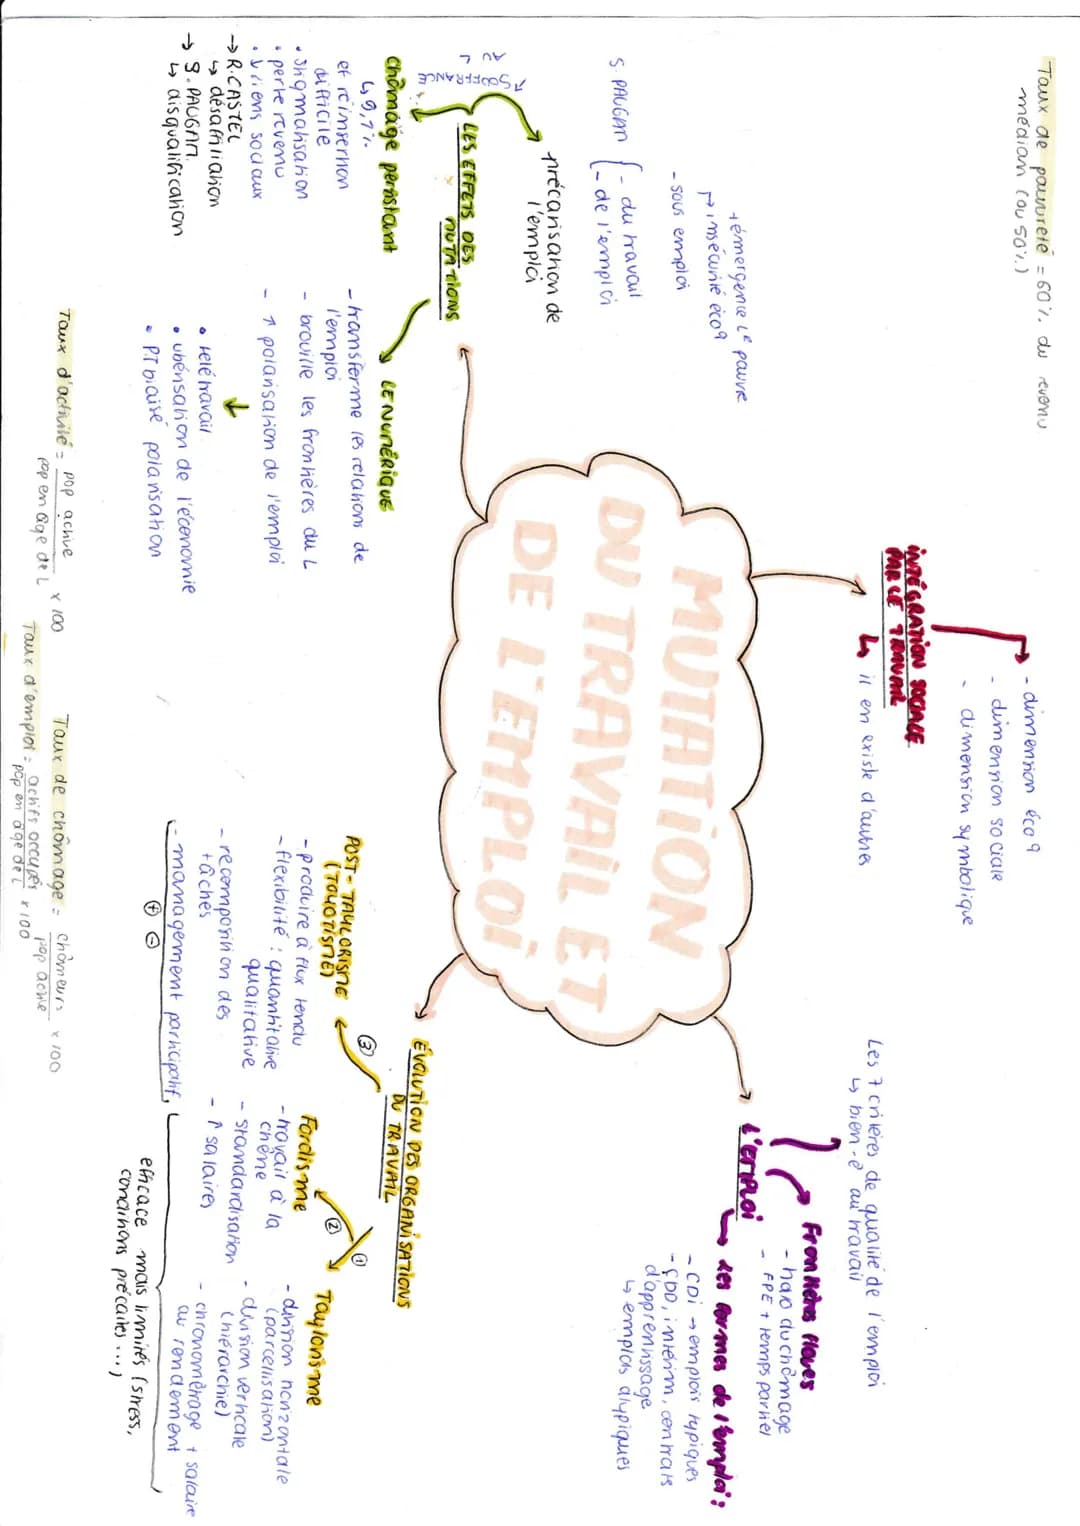 Taux de pauvreté = 60% du revenu
médian (ou 50%)
INTÉGRATION SOCIALE
PAR LE TRAVAIL
- dimension éco
- dimension sociale
- dimension symbolique
↳ il en existe d'autres
Les 7 critères de qualité de l'emploi
↳ bien-ê au travail
L'EMPLOI
Frontières floues
- halo du chômage
- FPE + temps partiel
Les formes de l'emploi :
- CDI → emplois typiques
- CDD, intérim, contrats
d'apprentissage
↳ emplois atypiques
MUTATION
DU TRAVAIL ET
DE L'EMPLOI
LES EFFETS DES
MUTATIONS
précarisation de
l'emploi
S. PAUGAM { - du travail
- de l'emploi
- sous emploi
↦ insécurité éco
+ émergence L^R pauvre
↗ SOUFFRANCE
AU L
chômage persistant
↳ 9,7%
et réinsertion
difficile
• stigmatisation
• perte revenu
• ↓ liens sociaux
→ R. CASTEL
↳ désaffiliation
→ S. PAUGAM
↳ disqualification
LE NUMÉRIQUE
- transforme les relations de
l'emploi
- brouille les frontières du L
- ↑ polarisation de l'emploi
↓
• télétravail
• ubérisation de l'économie
• PT biaisé polarisation
ÉVOLUTION DES ORGANISATIONS
DU TRAVAIL
①
Taylorisme
- division horizontale
(parcellisation)
- division verticale
(hiérarchie)
- chronométrage + salaire
au rendement
②
Fordisme
- travail à la
chêne
- standardisation
- ↑ salaires
③
POST-TAYLORISME
(TOYOTISME)
- produire à flux tendu
- flexibilité : quantitative
qualitative
- recomposition des
tâches
- management participatif
⊕ ⊖
efficace mais limités (stress,
conditions précaires ...)
Taux d'activité = pop active / pop en âge de L x 100
Taux de chômage = chômeurs / pop active x 100
Taux d'emploi = actifs occupés / pop en âge de L x 100